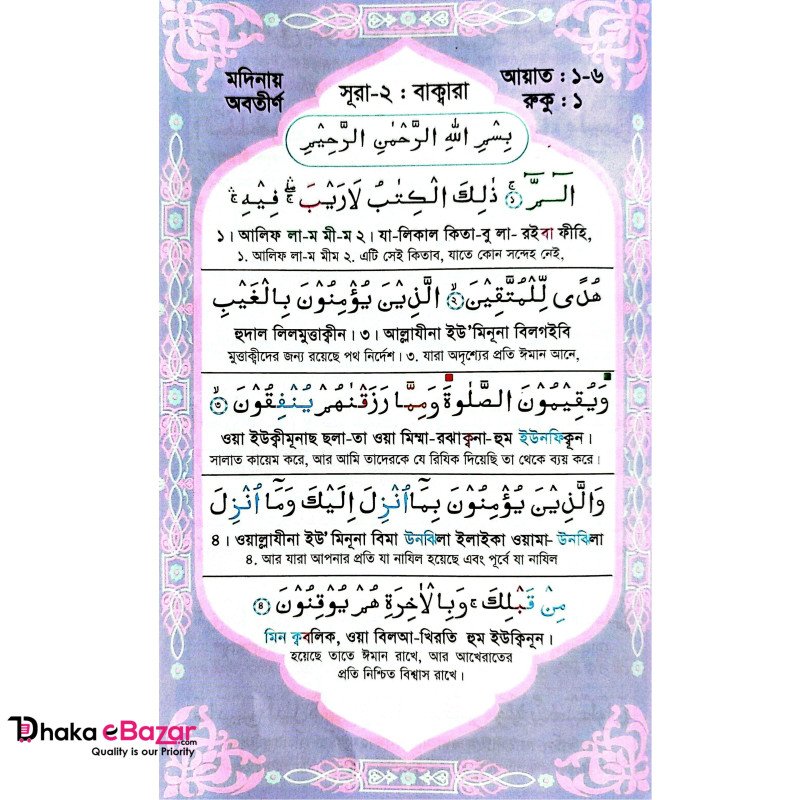 মদিনায়
অবতীর্ণ
সূরা-২ : বাক্বারা
আয়াত : ১-৬
রুকু : ১
بِسْمِ اللهِ الرَّحْمٰنِ الرَّحِيْمِ
الٓـمّٓ ۚ﴿١﴾ ذٰلِكَ الْكِتٰبُ لَا رَيْبَ ۛۖ فِيْهِ ۛۚ
১। আলিফ লা-ম মী-ম ২। যা-লিকাল কিতা-বু লা- রইবা ফীহি,
১. আলিফ লা-ম মীম ২. এটি সেই কিতাব, যাতে কোন সন্দেহ নেই,
هُدًى لِّلْمُتَّقِيْنَ ۙ﴿٢﴾ الَّذِيْنَ يُؤْمِنُوْنَ بِالْغَيْبِ
হুদাল লিলমুত্তাক্বীন। ৩। আল্লাযীনা ইউ’মিনূনা বিলগইবি
মুত্তাক্বীদের জন্য রয়েছে পথ নির্দেশ। ৩. যারা অদৃশ্যের প্রতি ঈমান আনে,
وَيُقِيْمُوْنَ الصَّلٰوةَ وَمِمَّا رَزَقْنٰهُمْ يُنْفِقُوْنَ ۙ﴿٣﴾
ওয়া ইউক্বীমূনাছ ছলা-তা ওয়া মিম্মা-রঝাক্বনা-হুম ইউনফিক্বূন।
সালাত কায়েম করে, আর আমি তাদেরকে যে রিযিক দিয়েছি তা থেকে ব্যয় করে।
وَالَّذِيْنَ يُؤْمِنُوْنَ بِمَآ اُنْزِلَ اِلَيْكَ وَمَآ اُنْزِلَ
৪। ওয়াল্লাযীনা ইউ’মিনূনা বিমা উনঝিলা ইলাইকা ওয়ামা- উনঝিলা
৪. আর যারা আপনার প্রতি যা নাযিল হয়েছে এবং পূর্বে যা নাযিল
مِنْ قَبْلِكَ ۚ وَبِالْاٰخِرَةِ هُمْ يُوْقِنُوْنَ ﴿٤﴾
মিন ক্ববলিক, ওয়া বিলআ-খিরতি হুম ইউক্বিনূন।
হয়েছে তাতে ঈমান রাখে, আর আখেরাতের
প্রতি নিশ্চিত বিশ্বাস রাখে।
Dhaka eBazar.com
Quality is our Priority